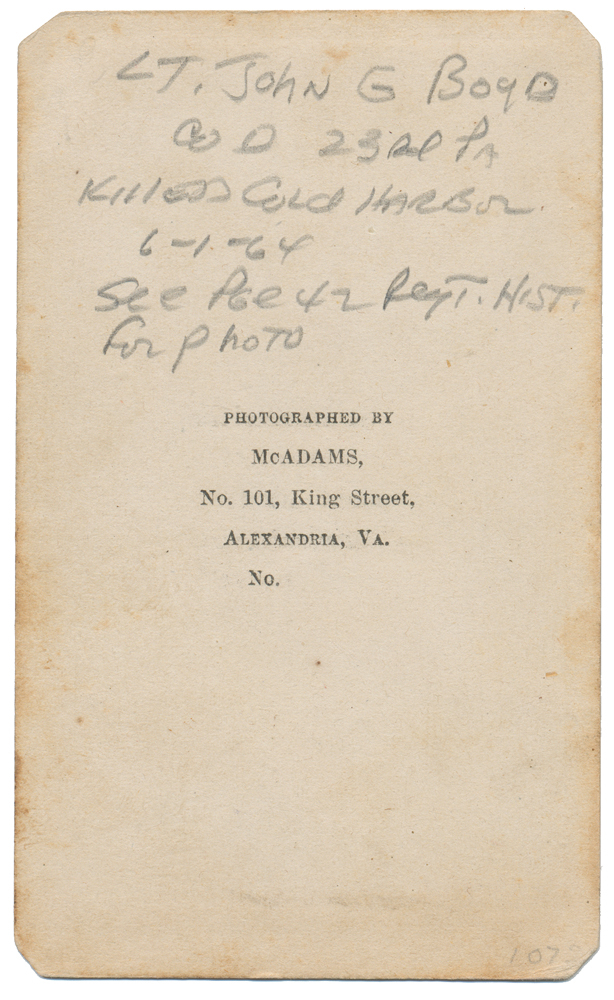 LT. JOHN G BOYD
CO D 23RD PA
KILLED COLD HARBOR
6-1-64
SEE PGE 42 REGT. HIST.
FOR PHOTO
PHOTOGRAPHED BY
McADAMS,
No. 101, King Street,
ALEXANDRIA, VA.
No.
107